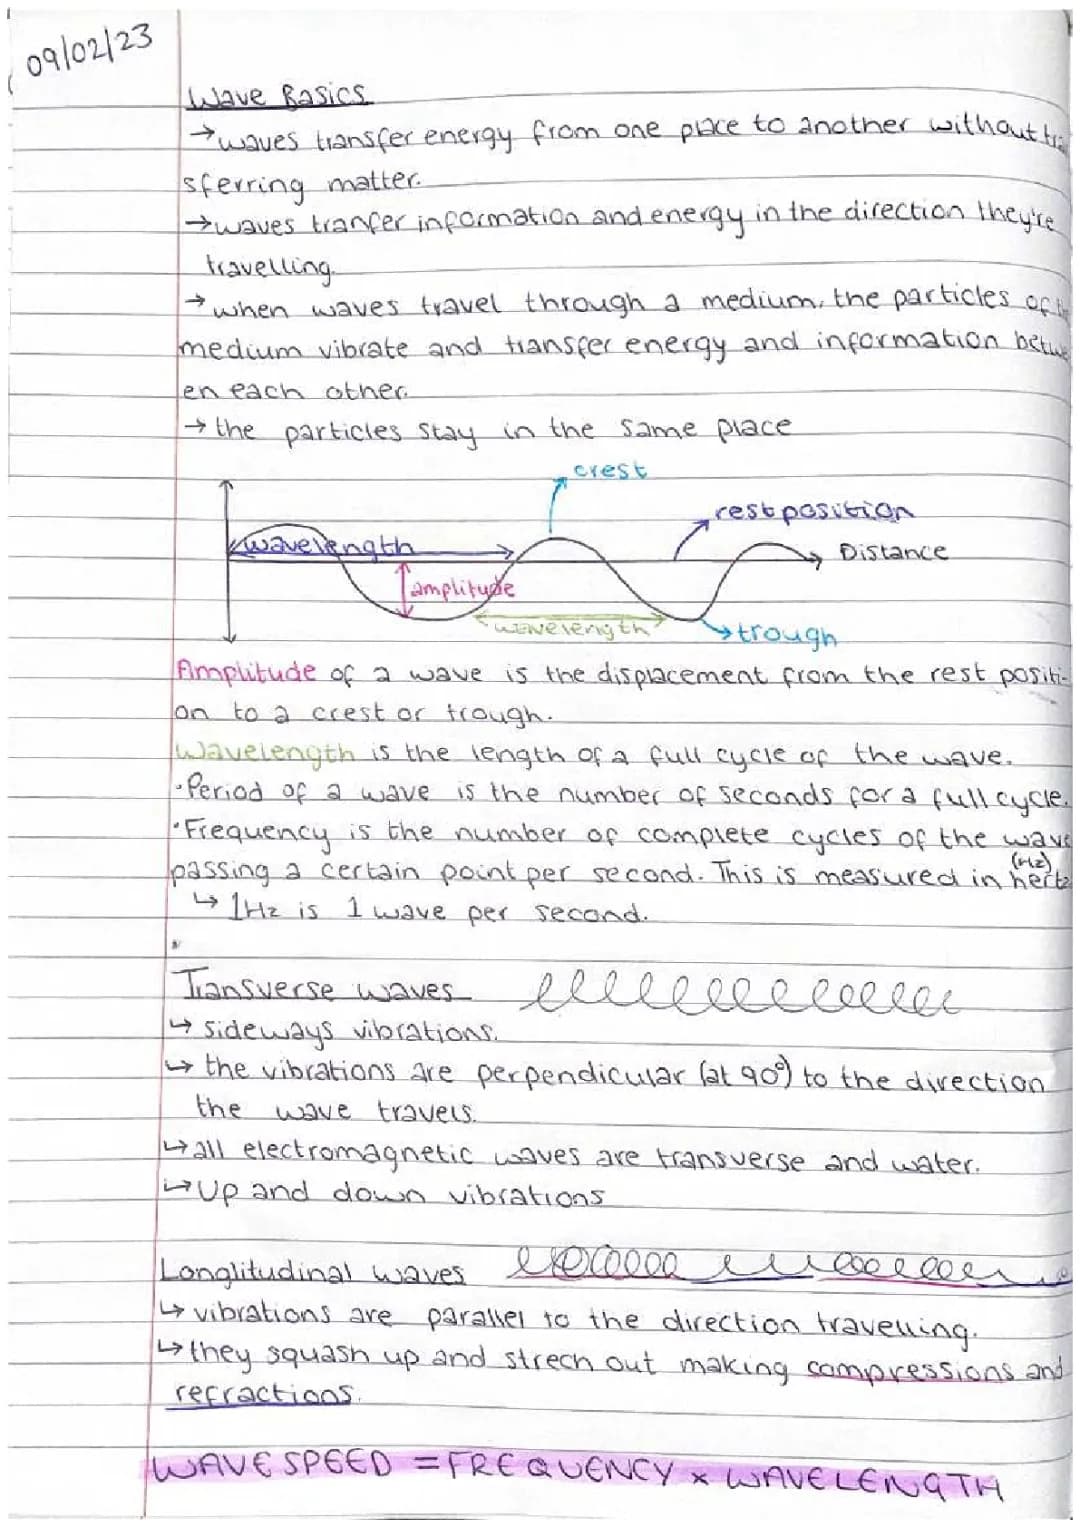 09/02/23
Wave Basics
→waves transfer energy from one place to another without tra
sferring matter.
→waves tranfer information and energy in the direction they're
travelling.
→when waves travel through a medium, the particles of
medium vibrate and transfer energy and information betwe
en each other.
→ the particles stay in the same place
crest
rest position
wavelength
Distance
amplitude
wavelength
trough
Amplitude of a wave is the displacement from the rest positi-
on to a crest or trough.
Wavelength is the length of a full cycle of the wave.
·Period of a wave is the number of seconds for a full cycle.
·Frequency is the number of complete cycles of the wave
(Hz)
passing a certain point per second. This is measured in hertz
↳ 1Hz is 1 wave per second.
Transverse waves
↳ sideways vibrations.
↳ the vibrations are perpendicular (at 90°) to the direction
the wave travels.
↳all electromagnetic waves are transverse and water.
↳Up and down vibrations
Longlitudinal waves
↳ vibrations are parallel to the direction travelling.
↳they squash up and strech out making compressions and
refractions.
WAVE SPEED = FREQUENCY × WAVELENGTH